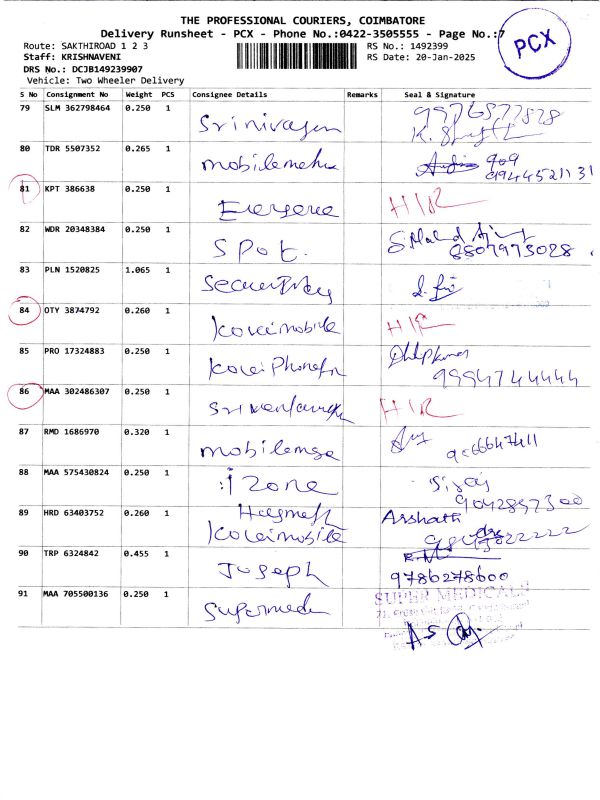 THE PROFESSIONAL COURIERS, COIMBATORE
Delivery Runsheet - PCX - Phone No.:0422-3505555 - Page No.:7
PCX
Route: SAKTHIROAD 1 2 3
RS No.: 1492399
Staff: KRISHNAVENI
RS Date: 20-Jan-2025
DRS No.: DCJB149239907
Vehicle: Two Wheeler Delivery
S No Consignment No Weight PCS Consignee Details Remarks Seal & Signature
79 SLM 362798464 0.250 1 Srinivasan
80 TDR 5507352 0.265 1 mobilemehu 909
9944521131
81 KPT 386638 0.250 1 H/R
82 WDR 20348384 0.250 1 SPot. 8807973028
83 PLN 1520825 1.065 1
84 OTY 3874792 0.260 1 kovaimobile H/R
85 PRO 17324883 0.250 1 kovai Phone
9994744444
86 MAA 302486307 0.250 1 H/R
87 RMD 1686970 0.320 1 9066647411
88 MAA 575430824 0.250 1 i Zone Siraj
9042897300
89 HRD 63403752 0.260 1 Arshath
kovaimobile 9843822222
90 TRP 6324842 0.455 1 Joseph 9786278600
91 MAA 705500136 0.250 1 SUPER MEDICALS